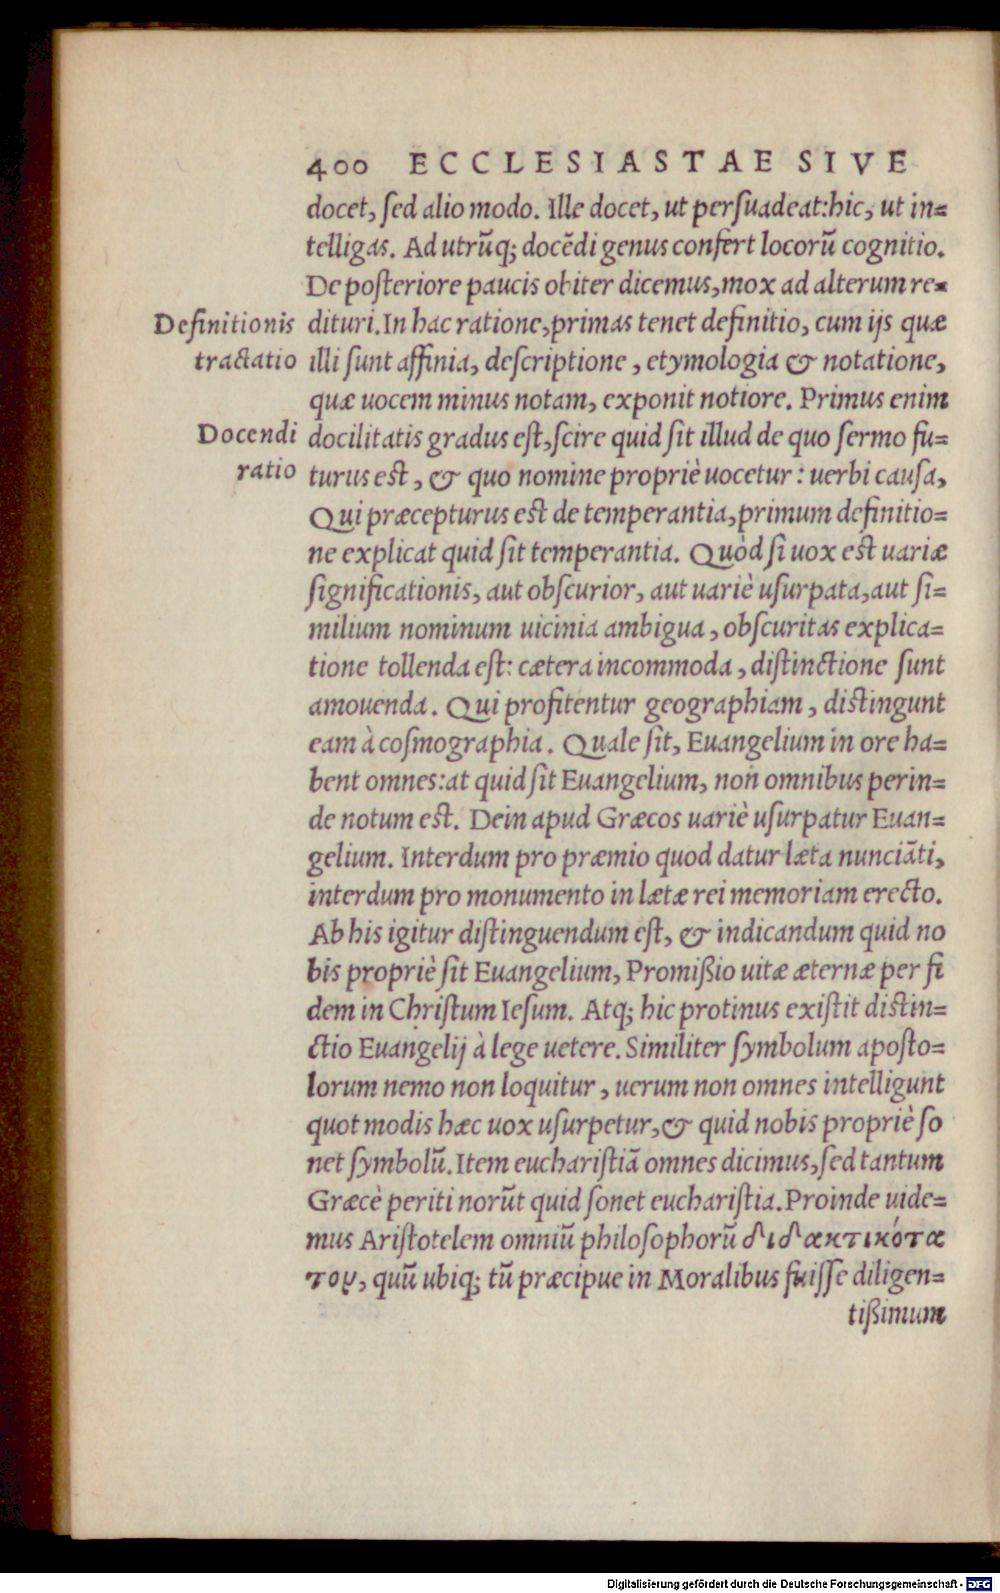 400 ECCLESIASTAE SIVE
docet, ſed alio modo. Ille docet, ut perſuadeat: hic, ut in=
telligas. Ad utrūq; docēdi genus confert locorū cognitio.
De poſteriore paucis obiter dicemus, mox ad alterum re=
Definitionis
tractatio
dituri. In hac ratione, primas tenet definitio, cum ijs quæ
illi ſunt affinia, deſcriptione, etymologia & notatione,
quæ uocem minus notam, exponit notiore. Primus enim
Docendi
ratio
docilitatis gradus eſt, ſcire quid ſit illud de quo ſermo fu=
turus eſt, & quo nomine propriè uocetur: uerbi cauſa,
Qui præcepturus eſt de temperantia, primum definitio=
ne explicat quid ſit temperantia. Quòd ſi uox eſt uariæ
ſignificationis, aut obſcurior, aut uariè uſurpata, aut ſi=
milium nominum uicinia ambigua, obſcuritas explica=
tione tollenda eſt: cætera incommoda, diſtinctione ſunt
amouenda. Qui profitentur geographiam, diſtingunt
eam à coſmographia. Quale ſit, Euangelium in ore ha=
bent omnes: at quid ſit Euangelium, non omnibus perin=
de notum eſt. Dein apud Græcos uariè uſurpatur Euan=
gelium. Interdum pro præmio quod datur læta nunciāti,
interdum pro monumento in lætæ rei memoriam erecto.
Ab his igitur diſtinguendum eſt, & indicandum quid no
bis propriè ſit Euangelium, Promißio uitæ æternæ per fi
dem in Chriſtum Ieſum. Atq; hic protinus exiſtit diſtin=
ctio Euangelij à lege uetere. Similiter ſymbolum apoſto=
lorum nemo non loquitur, uerum non omnes intelligunt
quot modis hæc uox uſurpetur, & quid nobis propriè ſo
net ſymbolū. Item euchariſtiā omnes dicimus, ſed tantum
Græcè periti norūt quid ſonet euchariſtia. Proinde uide=
mus Ariſtotelem omniū philoſophorū διδακτικότα
του, quū ubiq; tū præcipue in Moralibus fuiſſe diligen=
tißimum
Digitalisierung gefördert durch die Deutsche Forschungsgemeinschaft - DFG